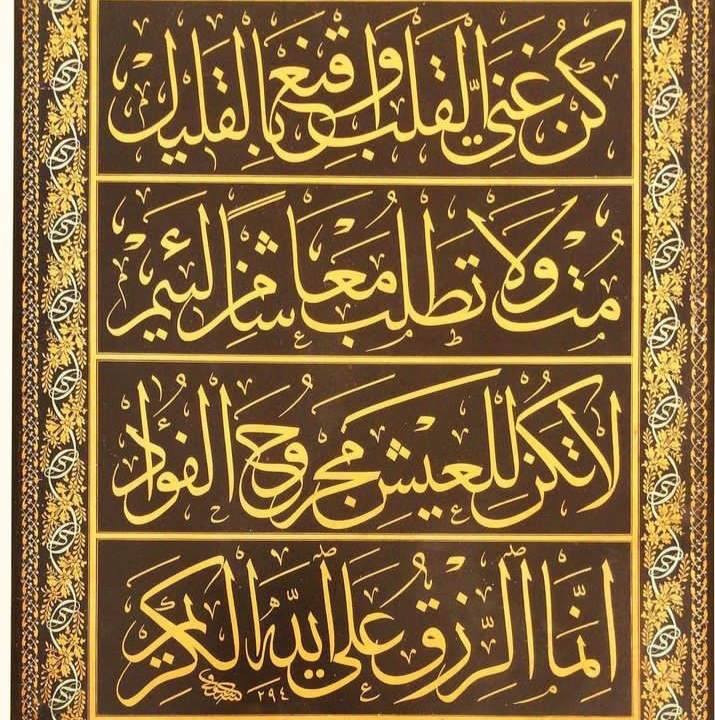 كُنْ غَنِيَّ الْقَلْبِ وَاقْنَعْ بِالْقَلِيلِ
مُتْ وَلَا تَطْلُبْ مَعَاشًا مِنْ لَئِيمٍ
لَا تَكُنْ لِلْعَيْشِ مَجْرُوحَ الْفُؤَادِ
إِنَّمَا الرِّزْقُ عَلَى اللّٰهِ الْكَرِيمِ
٢٩٤